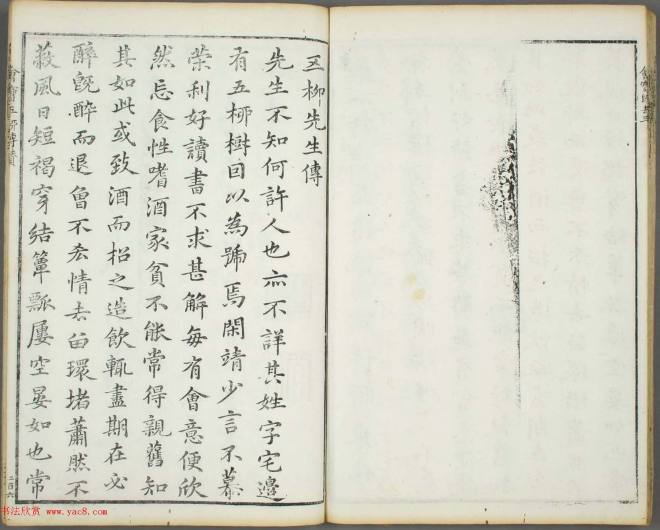 五柳先生傳
先生不知何許人也亦不詳其姓字宅邊
有五柳樹因以為號焉閑靖少言不慕
榮利好讀書不求甚解每有會意便欣
然忘食性嗜酒家貧不能常得親舊知
其如此或致酒而招之造飲輒盡期在必
醉既醉而退曾不吝情去留環堵蕭然不
蔽風日短褐穿結簞瓢屢空晏如也常
书法欣赏
www.yac8.com